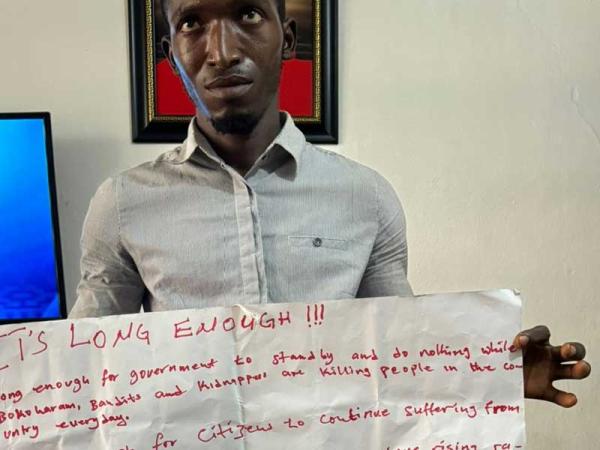 IT'S LONG ENOUGH !!!
ong enough for government to standby and do nothing while
Bokoharam, Bandits and Kidnappers are killing people in the co-
untry everyday.
for Citizens to continue suffering from
rising ra-